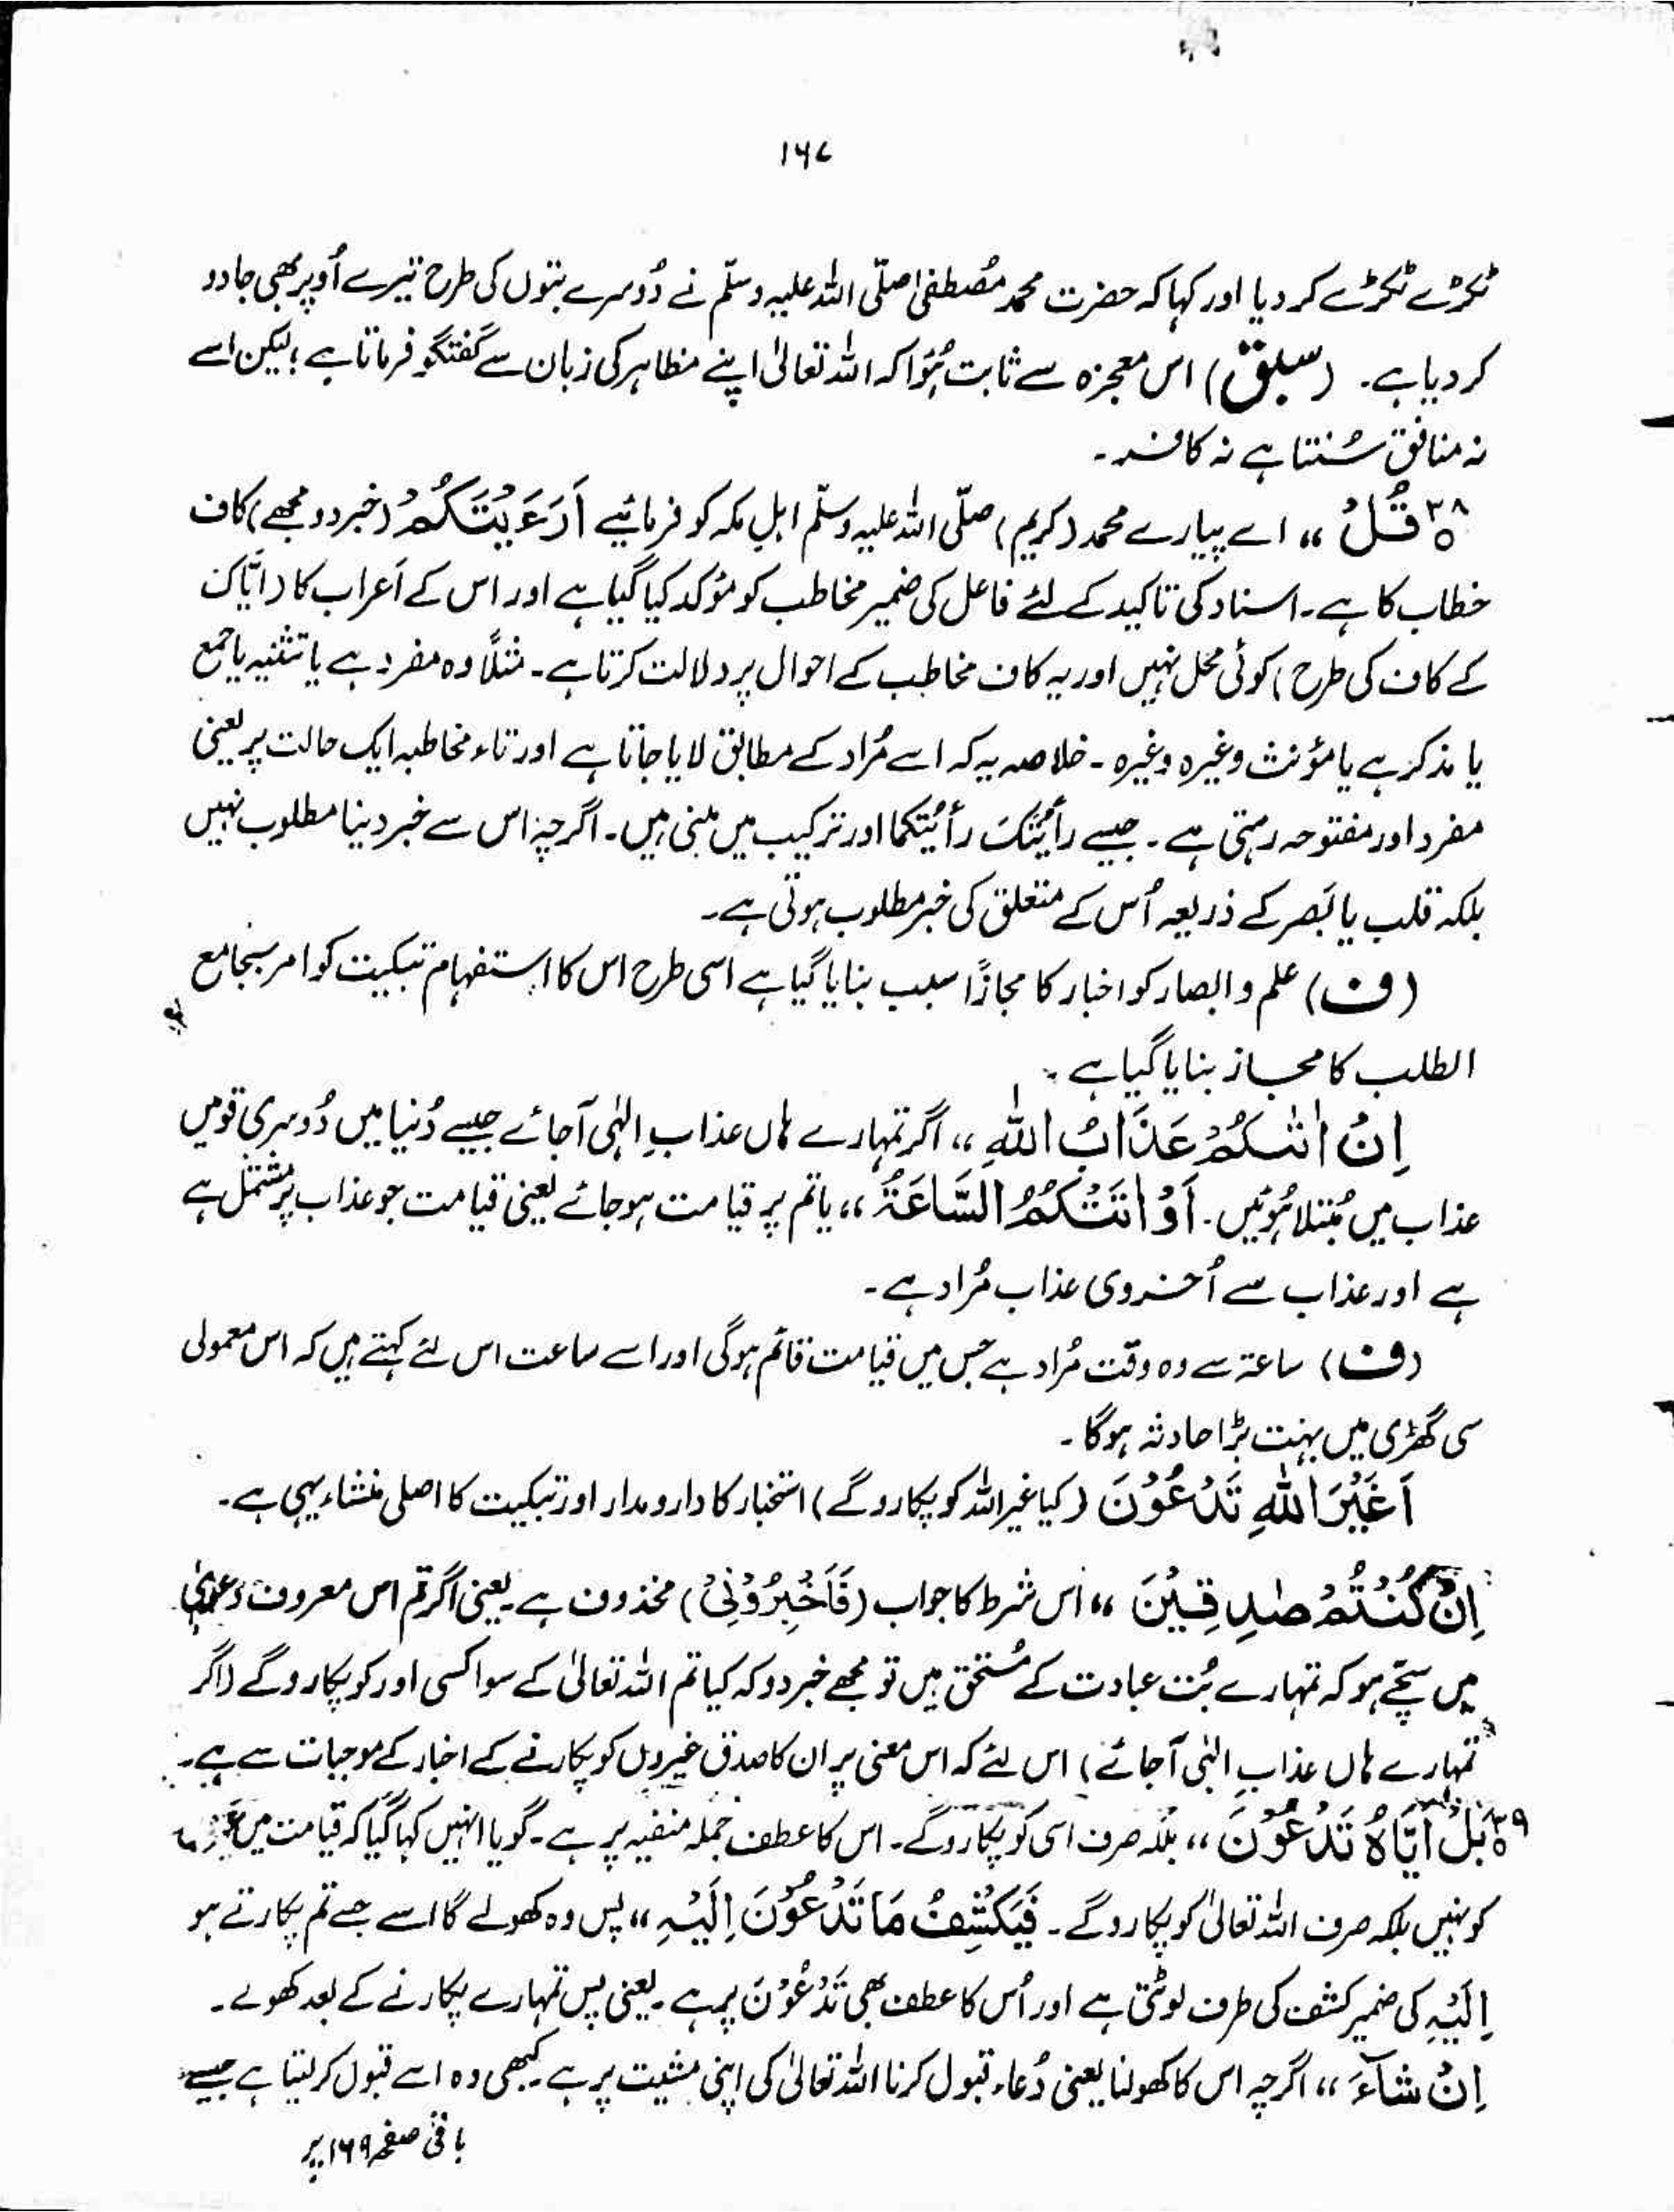 ۱۶۷
ٹکڑے ٹکڑے کر دیا اور کہا کہ حضرت محمد مُصطفیٰ صلّی اللہ علیہ وسلّم نے دُوسرے بتوں کی طرح تیرے اُوپر بھی جادو
کر دیا ہے۔ (سبق) اس معجزہ سے ثابت ہُوَا کہ اللہ تعالیٰ اپنے مظاہر کی زبان سے گفتگو فرماتا ہے ؛ لیکن اسے
نہ منافق سُنتا ہے نہ کافر۔
۳۸ قُلْ ،، اے پیارے محمد (کریم) صلّی اللہ علیہ وسلّم اہلِ مکہ کو فرمائیے اَرَءَیْتَکُمْ (خبر دو مجھے) کاف
خطاب کا ہے۔ اسناد کی تاکید کے لئے فاعل کی ضمیر مخاطب کو مؤکد کیا گیا ہے اور اس کے اَعراب کا (ایّاک
کے کاف کی طرح) کوئی محل نہیں اور یہ کاف مخاطب کے احوال پر دلالت کرتا ہے۔ مثلًا وہ مفرد ہے یا تثنیہ یا جمع
یا مذکر ہے یا مؤنث وغیرہ وغیرہ۔ خلاصہ یہ کہ اسے مُراد کے مطابق لایا جاتا ہے اور تاء مخاطبہ ایک حالت پر یعنی
مفرد اور مفتوحہ رہتی ہے۔ جیسے رأیتَکَ رأیتَکما اور ترکیب میں مبنی ہیں۔ اگرچہ اس سے خبر دینا مطلوب نہیں
بلکہ قلب یا بَصر کے ذریعہ اُس کے متعلق کی خبر مطلوب ہوتی ہے۔
(ف) علم و ابصار کو اخبار کا مجازًا سبب بنایا گیا ہے اسی طرح اس کا استفہام تبکیت کو امر بجامع
الطلب کا مجاز بنایا گیا ہے۔
اِنْ اَتٰىکُمْ عَذَابُ اللّٰهِ ،، اگر تمہارے ہاں عذابِ الٰہی آجائے جیسے دُنیا میں دُوسری قومیں
عذاب میں مُبتلا ہُوئیں۔ اَوْ اَتَتْکُمُ السَّاعَةُ ،، یا تم پر قیامت ہو جائے یعنی قیامت جو عذاب پر مشتمل ہے
ہے اور عذاب سے اُخروی عذاب مُراد ہے۔
(ف) ساعۃ سے وہ وقت مُراد ہے جس میں قیامت قائم ہوگی اور اسے ساعت اس لئے کہتے ہیں کہ اس معمولی
سی گھڑی میں بہت بڑا حادثہ ہوگا۔
اَغَیْرَ اللّٰهِ تَدْعُوْنَ (کیا غیر اللہ کو پکارو گے) استخبار کا دارومدار اور تبکیت کا اصلی منشاء یہی ہے۔
اِنْ کُنْتُمْ صٰدِقِیْنَ ،، اس شرط کا جواب (فَاَخْبِرُوْنِیْ) محذوف ہے یعنی اگر تم اس معروف دعویٰ
میں سچّے ہو کہ تمہارے بُت عبادت کے مُستحق ہیں تو مجھے خبر دو کہ کیا تم اللہ تعالیٰ کے سوا کسی اور کو پکارو گے (اگر
تمہارے ہاں عذابِ الٰہی آجائے) اس لئے کہ اس معنی پر ان کا صدق غیروں کو پکارنے کے اخبار کے موجبات سے ہے۔
۳۹ بَلْ اِیَّاہُ تَدْعُوْنَ ،، بلکہ صرف اسی کو پکارو گے۔ اس کا عطف جُملہ منفیہ پر ہے۔ گویا انہیں کہا گیا کہ قیامت میں
کو نہیں بلکہ صرف اللہ تعالیٰ کو پکارو گے۔ فَیَکْشِفُ مَا تَدْعُوْنَ اِلَیْہِ ،، پس وہ کھولے گا اسے جسے تم پکارتے ہو
اِلَیْہِ کی ضمیر کشف کی طرف لوٹتی ہے اور اُس کا عطف بھی تَدْعُوْنَ پر ہے۔ یعنی پس تمہارے پکارنے کے بعد کھولے۔
اِنْ شَآءَ ،، اگرچہ اس کا کھولنا یعنی دُعاء قبول کرنا اللہ تعالیٰ کی اپنی مشیت پر ہے۔ کبھی وہ اسے قبول کرلیتا ہے جیسے
باقی صفحہ ۱۶۹ پر